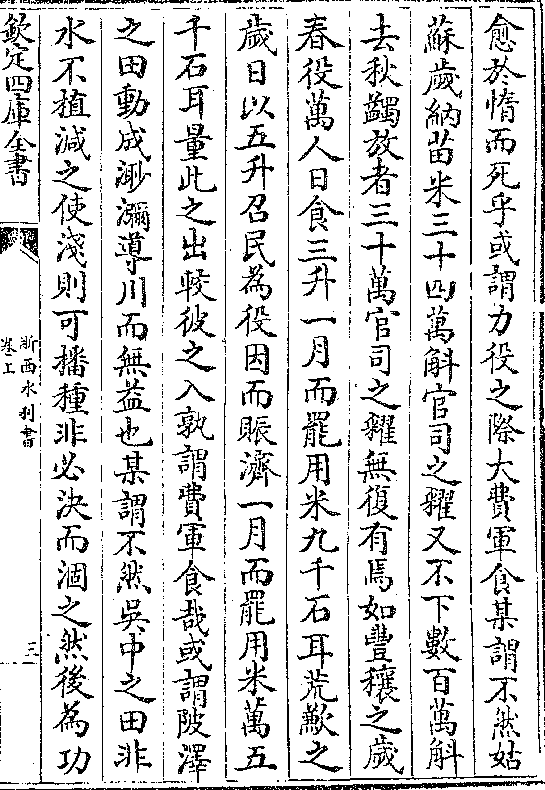 愈於惰而死乎或謂力役之際大費軍食某謂不然姑
蘇歲納苗米三十四萬斛官司之糴又不下數百萬斛
去秋蠲放者三十萬官司之糴無復有焉如豐穰之歲
春役萬人日食三升一月而罷用米九千石耳荒歉之
歲日以五升召民為役因而賑濟一月而罷用米萬五
千石耳量此之出較彼之入孰謂費軍食哉或謂陂澤
之田動成渺瀰導川而無益也某謂不然吳中之田非
水不植減之使淺則可播種非必決而涸之然後為功
欽定四庫全書
浙西水利書
卷上
三